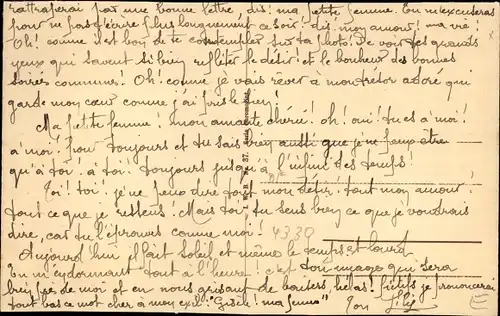 rattraperai par une bonne lettre, dis! ma petite femme. Tu m'excuseras
pour ne pas t'écrire plus longuement ce soir! dis! mon amour! ma vie!
Oh! comme il est bon de te contempler sur ta photo! De voir tes grands
yeux qui savent si bien refléter le désir et le bonheur des bonnes
soirées communes! Oh! comme je vais rêver à mon trésor adoré qui
garde mon cœur comme j'ai pris le sien!
Ma petite femme! mon amante chérie! oh! oui! tu es à moi!
à moi! pour toujours et tu sais bien aussi que je ne peux être
qu'à toi! à toi! toujours jusqu'à l'infini des temps!
Toi! toi! je ne peux dire tout mon désir! tout mon amour!
tout ce que je ressens. Mais toi tu sens bien ce que je voudrais
dire, car tu l'éprouves comme moi! 4330
Aujourd'hui il fait soleil et même le temps est lourd
En m'endormant tout à l'heure! c'est ton image qui sera
bien près de moi et en nous grisant de baisers, hélas! je prononcerai
tout bas ce mot cher à mon
Ton